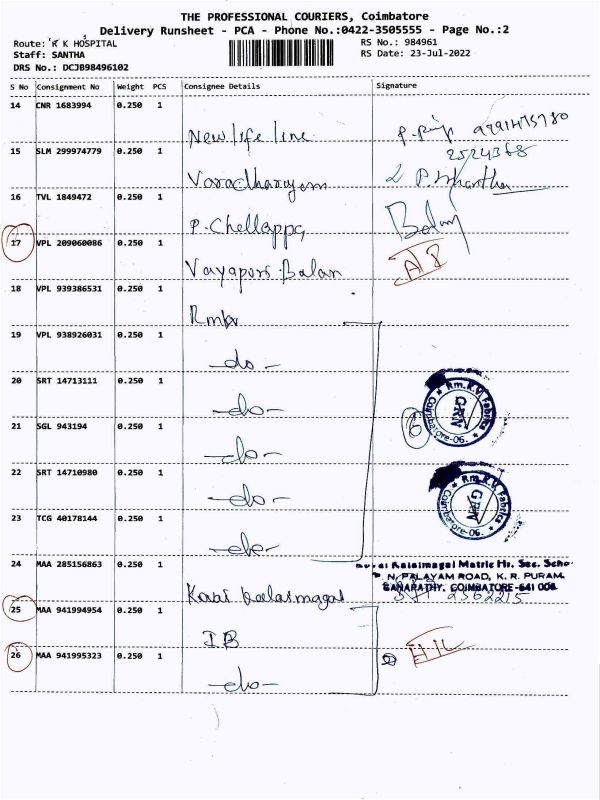 THE PROFESSIONAL COURIERS, Coimbatore
Delivery Runsheet - PCA - Phone No.:0422-3505555 - Page No.:2
Route: R K HOSPITAL RS No.: 984961
Staff: SANTHA RS Date: 23-Jul-2022
DRS No.: DCJB98496102
S No Consignment No Weight PCS Consignee Details Signature
14 CNR 1683994 0.250 1
New life line
15 SLM 299974779 0.250 1
2524368
Varadharajan
16 TVL 1849472 0.250 1
P. Chellappa
17 VPL 209060086 0.250 1
Vayapuri Balan
18 VPL 939386531 0.250 1
Rmkv
19 VPL 938926031 0.250 1
-do-
20 SRT 14713111 0.250 1
-do-
Rm.K.V. Fabrics
GRN
Coimbatore-06.
6
21 SGL 943194 0.250 1
-do-
22 SRT 14710980 0.250 1
-do-
Rm.K.V. Fabrics
GRN
Coimbatore-06.
23 TCG 40178144 0.250 1
-do-
24 MAA 285156863 0.250 1
Kalaimagal Matric Hr. Sec. Scho
N. PALAYAM ROAD, K. R. PURAM.
GANAPATHY, COIMBATORE-641 006.
Kovai Kalaimagal
25 MAA 941994954 0.250 1
IB
26 MAA 941995323 0.250 1
-do-